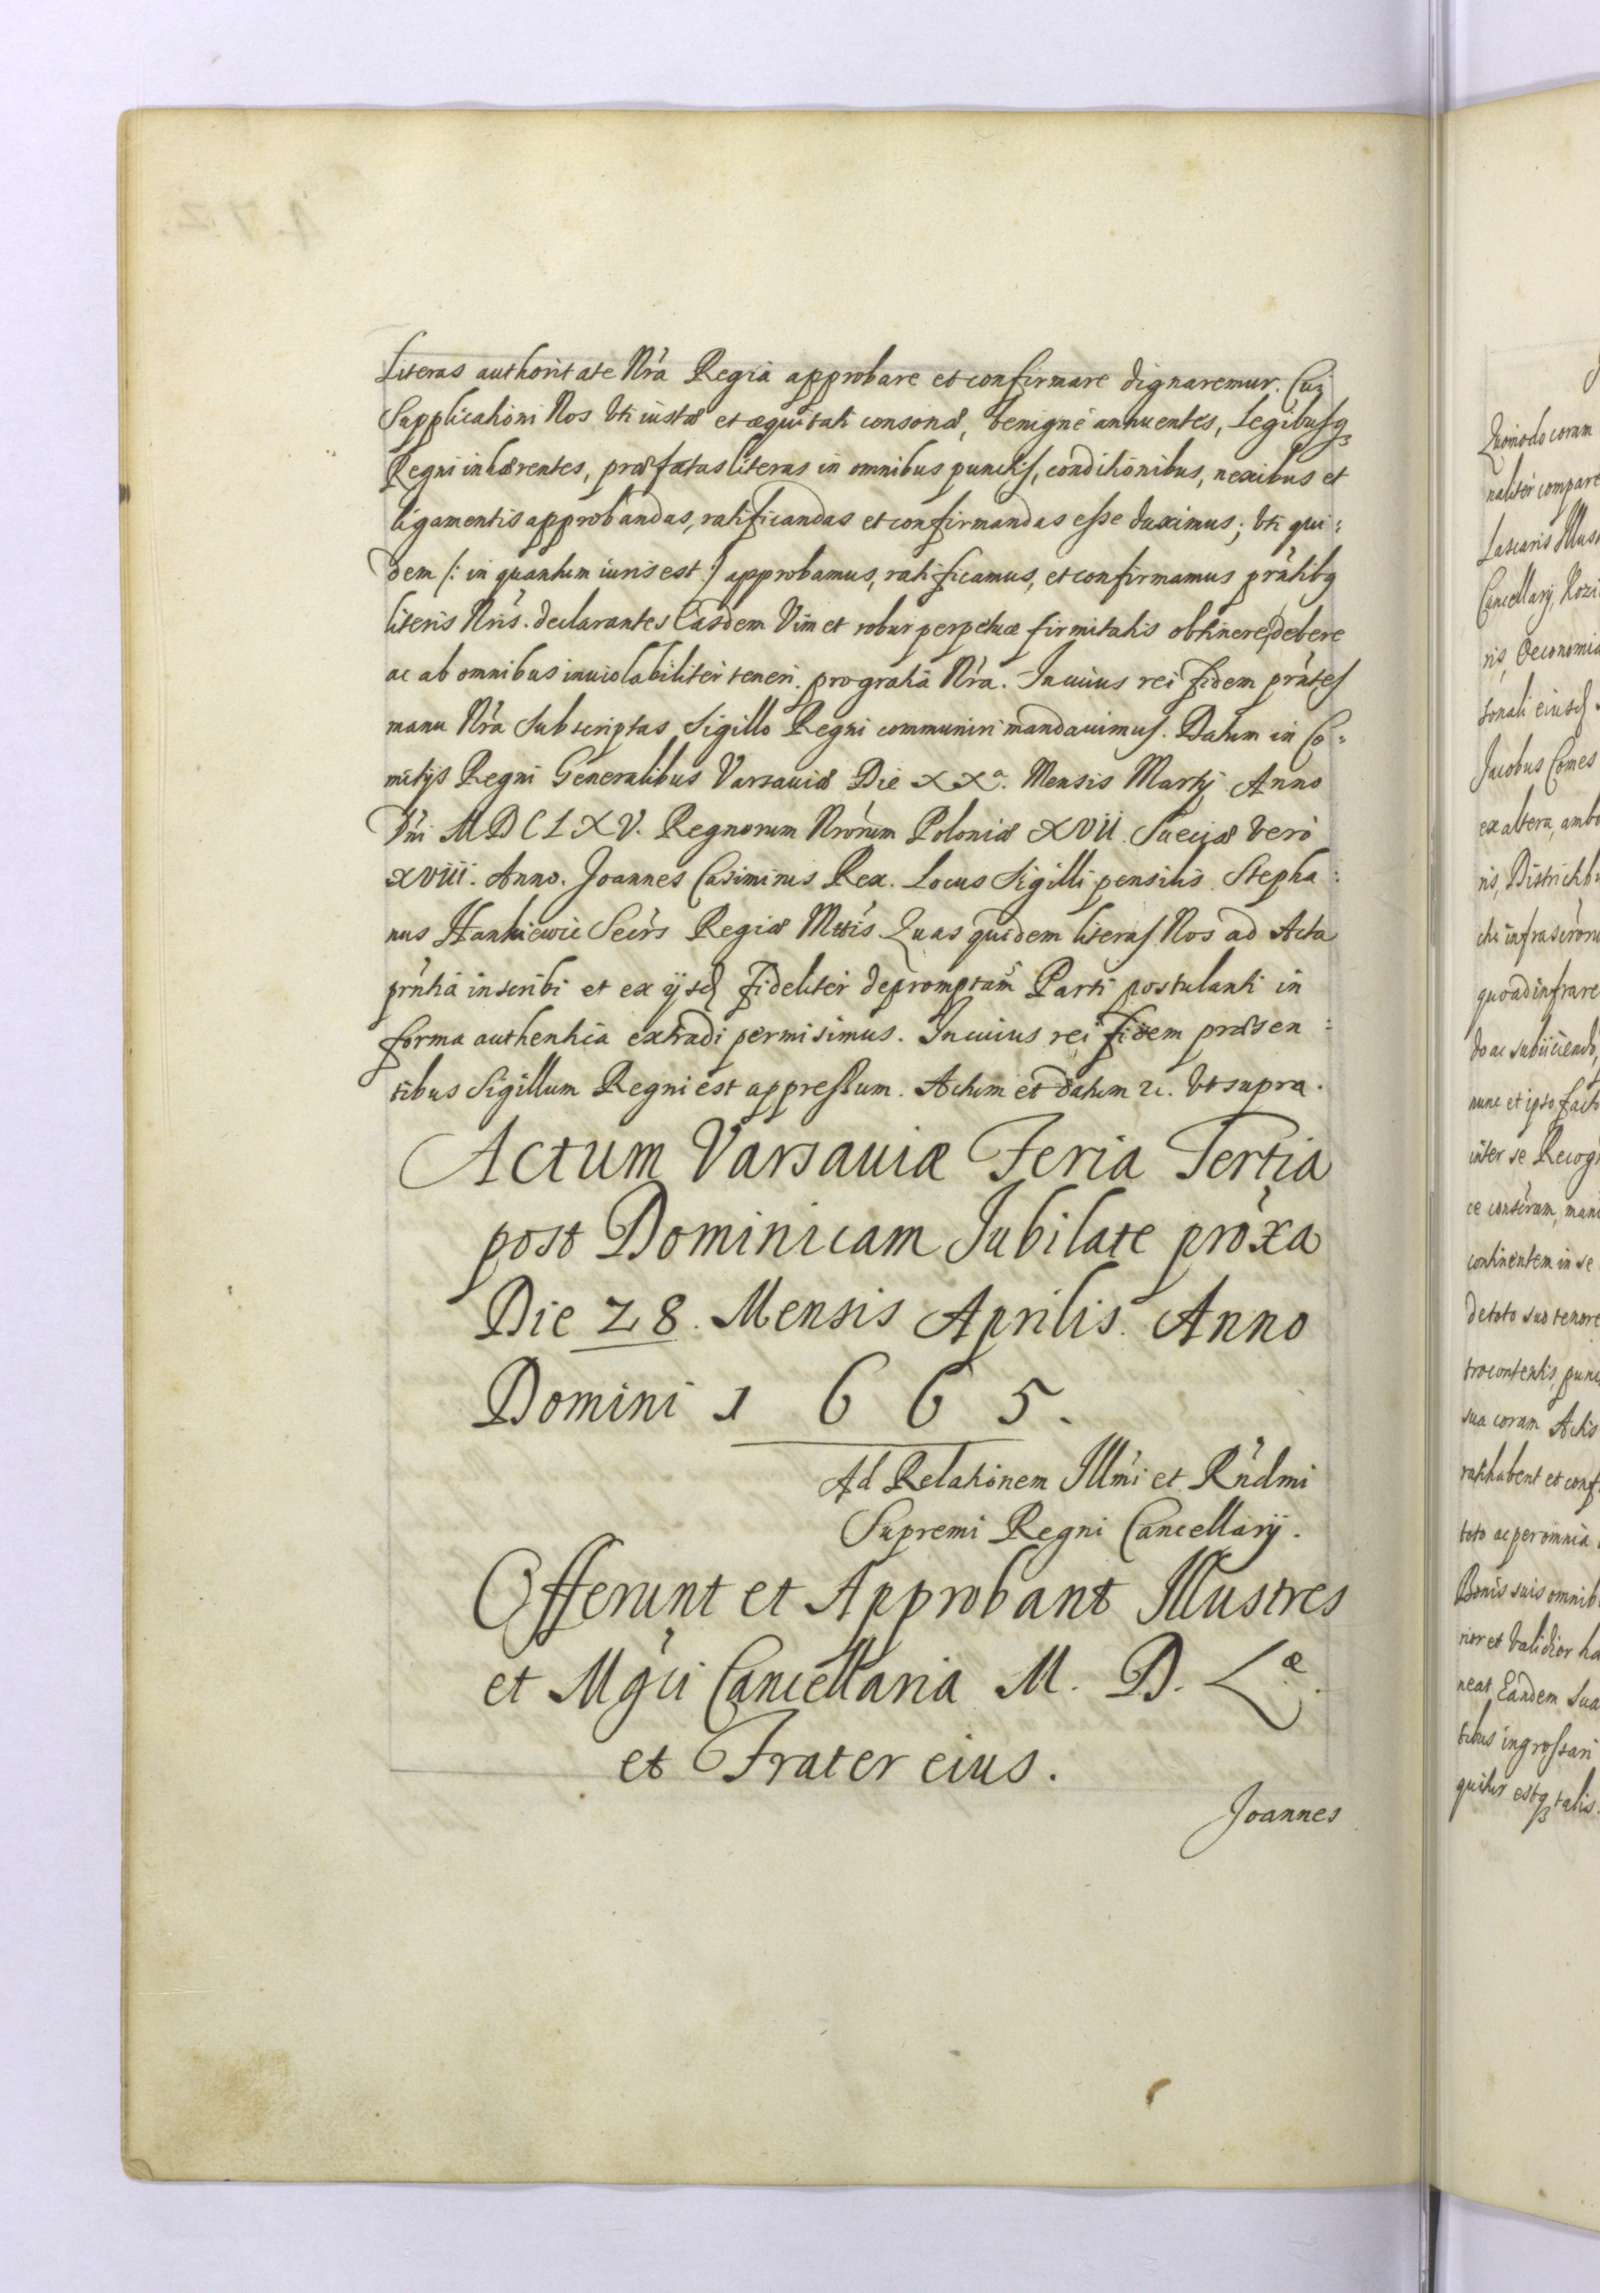 Literas authoritate Nr̃a Regia approbare et confirmare dignaremur. Cui
Supplicationi Nos Vti iustæ et æquitati consonæ, benigné annuentes, Legibusq3
Regni inhærentes, præfatas literas in omnibus punctis, conditionibus, nexibus et
ligamentis approbandas, ratificandas et confirmandas esse duximus; Vti qui:
dem /: in quantum iuris est :/ approbamus, ratificamus, et confirmamus prñtibq
literis Nris. declarantes Easdem Vim et robur perpetuæ firmitatis obtinere, debere
ac ab omnibus inuiolabiliter teneri. pro gratia Nr̃a. In cuius rei fidem prñtes
manu Nr̃a Subscriptas Sigillo Regni communiri mandauimus. Datum in Co:
mitijs Regni Generalibus Varsauiæ Die XXa. Mensis Martij Anno
Dñi MDCLXV. Regnorum Nrorum Poloniæ XVII. Sueciæ Verò
XVIII. Anno. Joannes Casimirus Rex. Locus Sigilli pensilis. Stepha:
nus Hankiewic Secrs Regiæ Mttis. Quas quidem literas Nos ad Acta
prñtia inscribi et ex ijsd fideliter depromptam Parti postulanti in
forma authentica extradi permisimus. In cuius rei fidem præsen:
tibus Sigillum Regni est appressum. Actum et datum 2c. Vt supra.
Actum Varsauiæ Feria Tertia
post Dominicam Jubilate próxa
Die 28. Mensis Aprilis. Anno
Domini 1665.
Ad Relationem Illmi et Rndmi
Supremi Regni Cancellarij.
Offerunt et Approbant Illustres
et Mgci Cancellaria M. D. Læ.
et Frater eius.
Joannes
Quomodo coram
naliter compare
Lascaris Illus
Cancellarij, Kozi
ris, Oeconomia
sonali eiusd
Jacobus Comes
ex altera, ambo
ris, Districtibu
chi infrascroru
quoad infrare
do ac subijciendo,
nunc et ipso facto
inter se Recog
ce conscram, manu
continentem in se
de toto suo tenore
trocontentis, punc
sua coram Actis
ratihabent et conf
toto ac per omnia
Bonis suis omnib
rior et Validior ha
neat Eandem sua
tibus ingrossari
quitur estq3 talis.